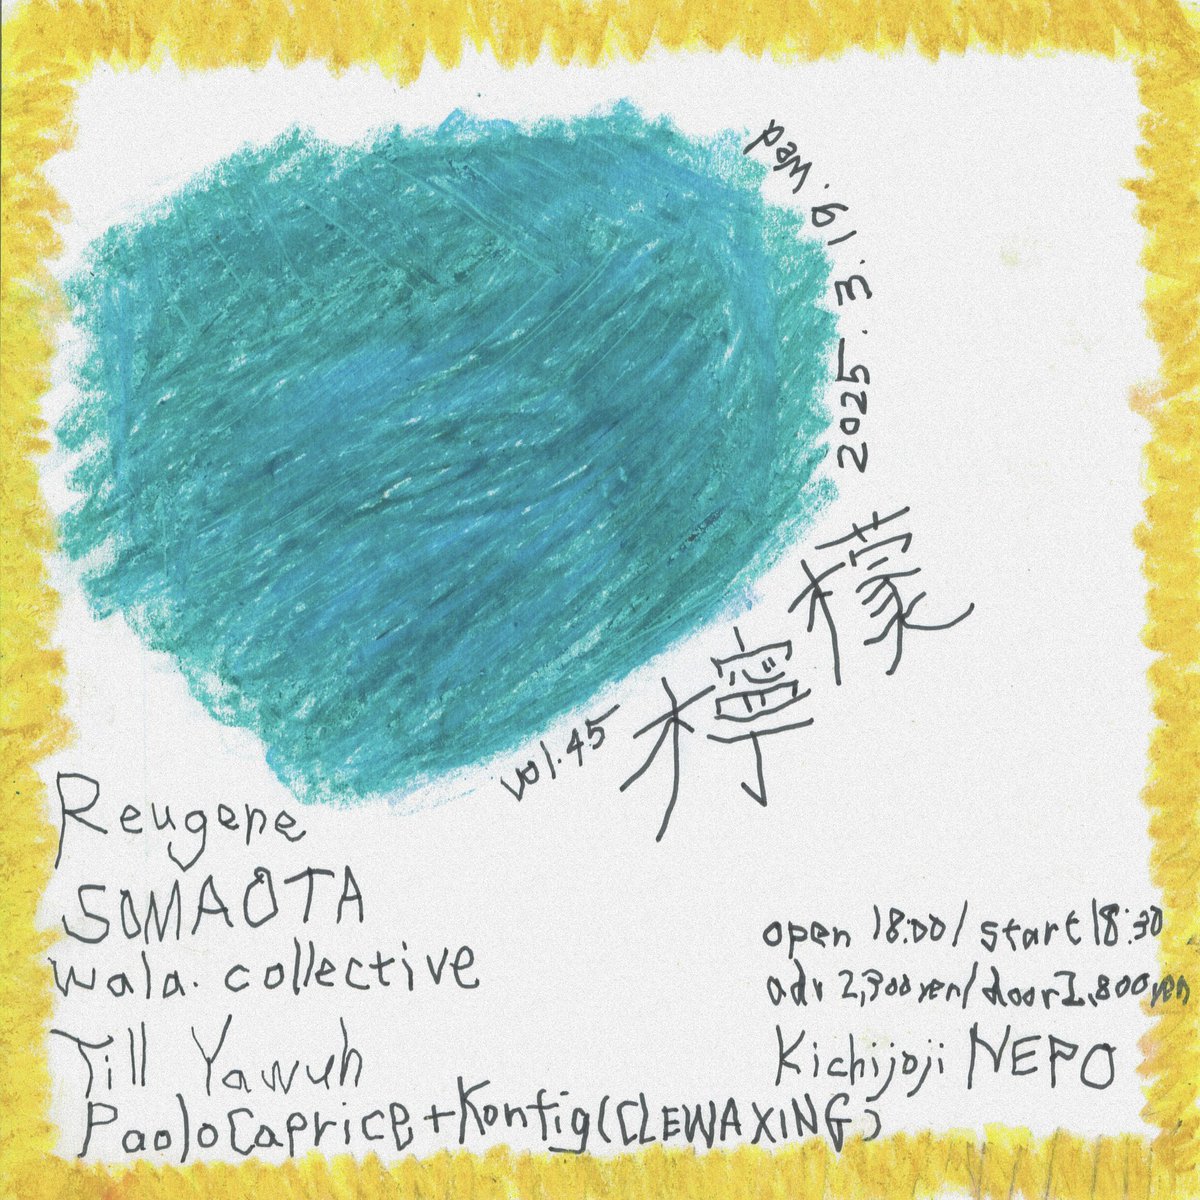 2025.3.19.Wed
vol.45 檸檬
Reugene
SOMAOTA
wala. collective
Till Yawuh
Paolo Caprice + Konfig (CLEWAXING)
open 18:00/ start 18:30
adv 2,300yen/door 2,800yen
Kichijoji NEPO